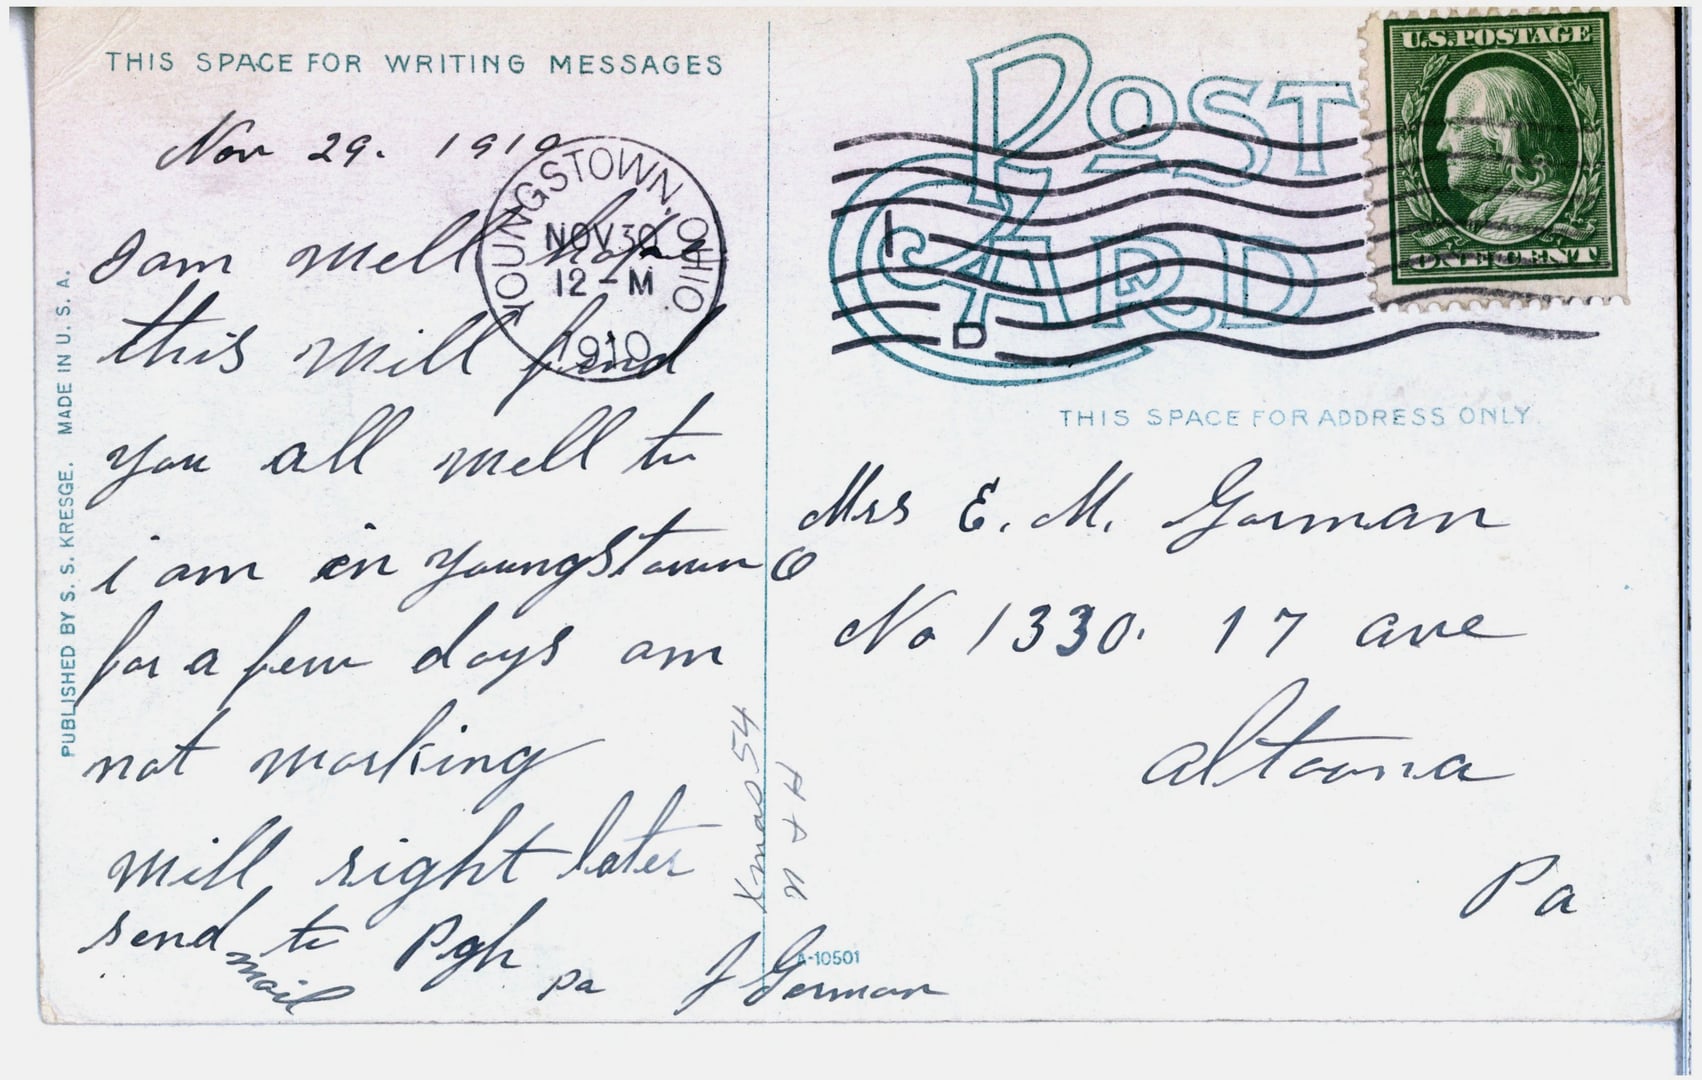 THIS SPACE FOR WRITING MESSAGES
Nov 29. 1910
I am well hope
this will find
you all well to
i am in Youngstown O
for a few days am
not working
will right later
send mail to Pgh
Pa
J Gorman
YOUNGSTOWN, OHIO.
NOV 30
12 - M
1910
PUBLISHED BY S. S. KRESGE. MADE IN U. S. A.
Xmas 54
A-10501
POST CARD
1
D
U.S. POSTAGE
ONE CENT
THIS SPACE FOR ADDRESS ONLY.
Mrs E. M. Gorman
No 1330. 17 ave
Altoona
Pa